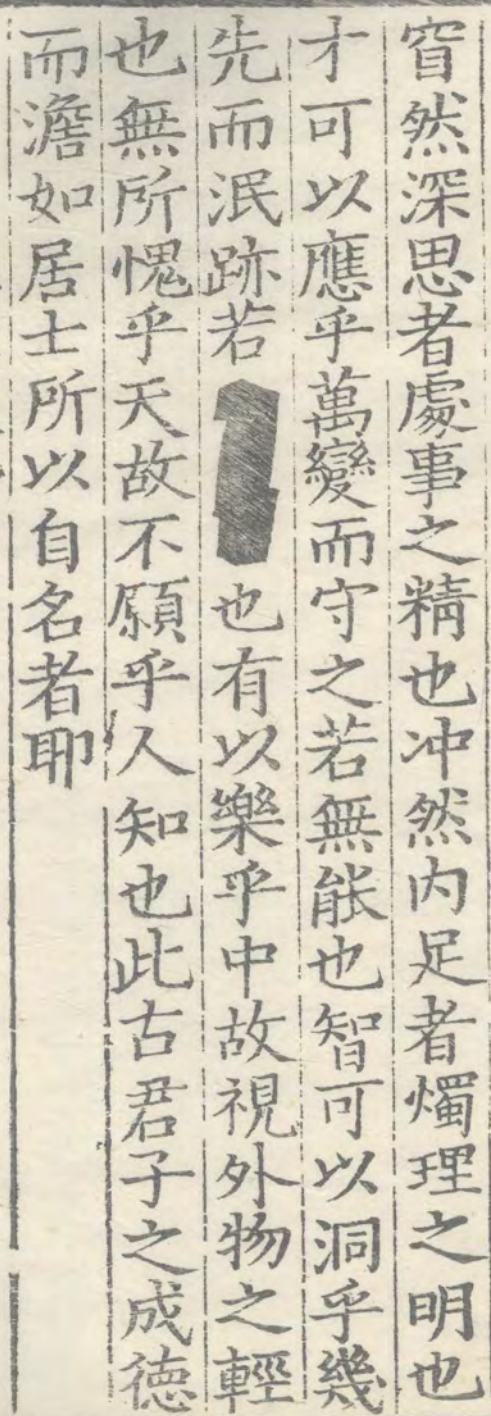 窅然深思者處事之精也冲然内足者燭理之明也
才可以應乎萬變而守之若無能也智可以洞乎幾
先而泯跡若也有以樂乎中故視外物之輕
也無所愧乎天故不願乎人知也此古君子之成徳
而澹如居士所以自名者耶